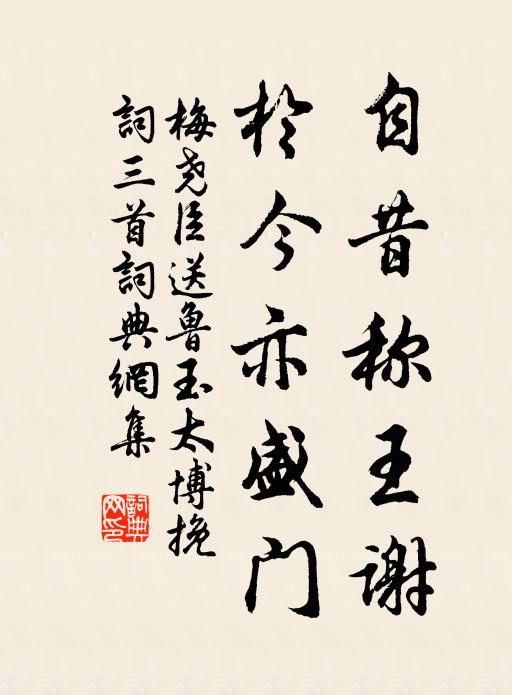 自昔称王谢
於今亦盛门
梅尧臣送鲁玉太博挽
詞三首詞典網集
詞典网印